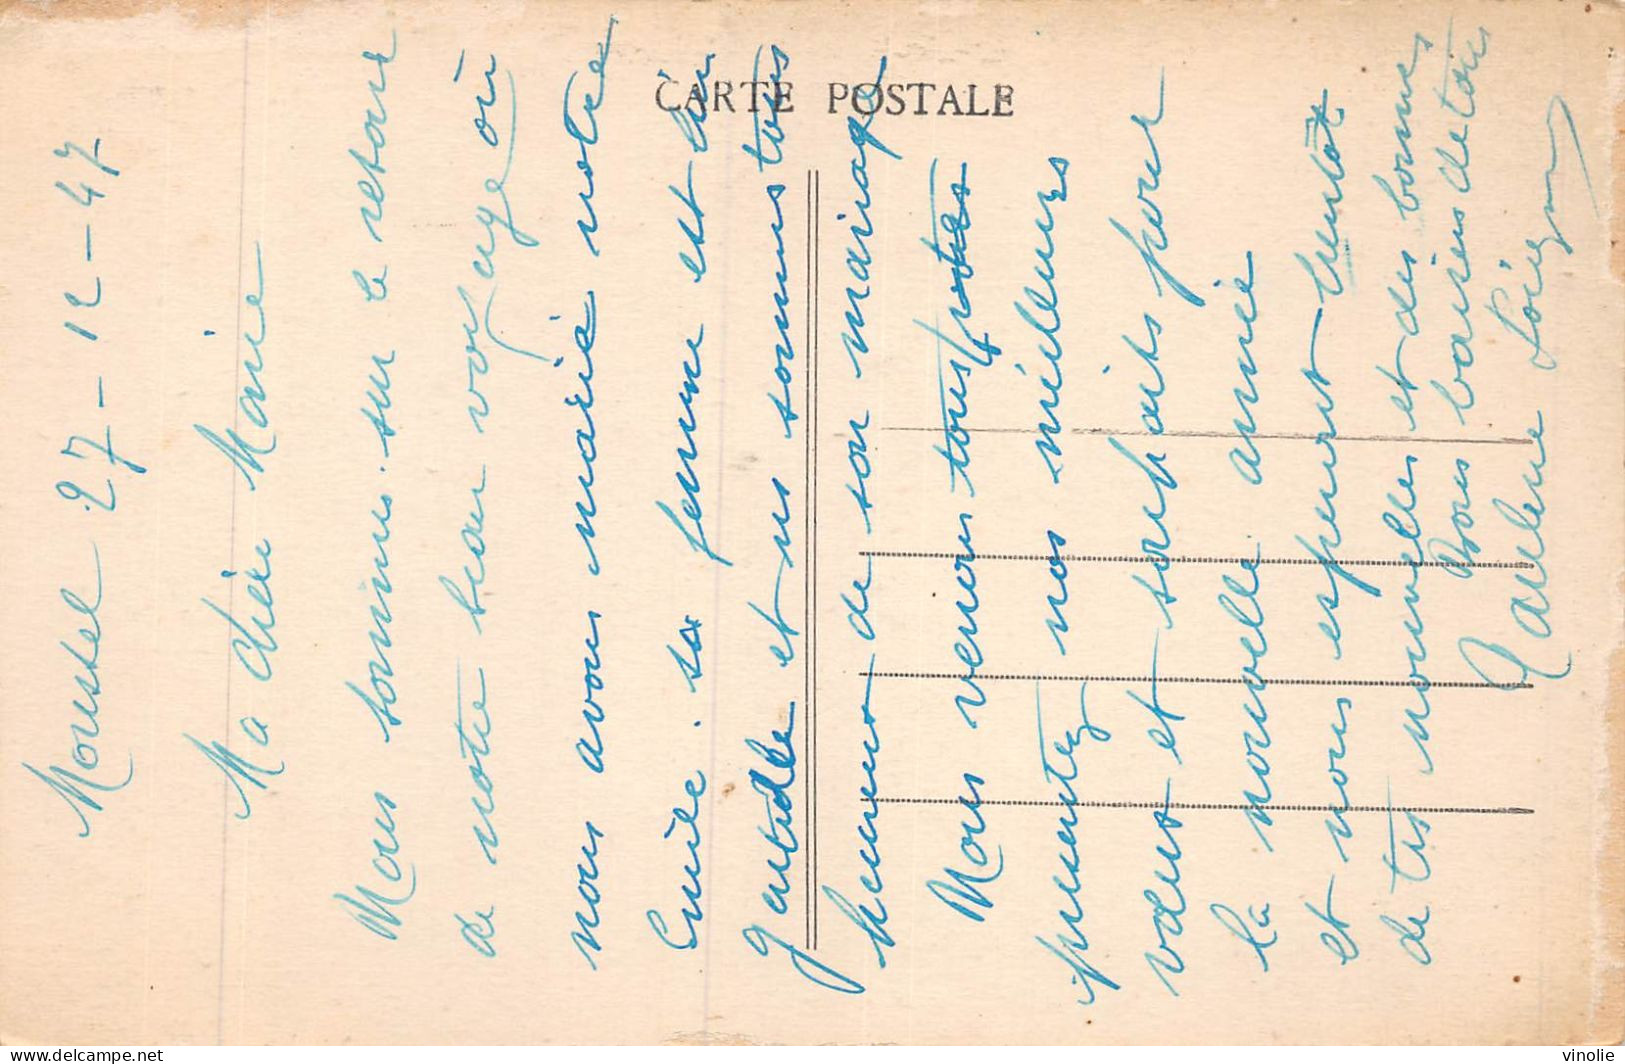 CARTE POSTALE
Moustel 27-12-47
Ma chère Marie
Nous sommes sur le retour
de notre beau voyage où
nous avons marié notre
Emile. sa femme est bien
gentille et ns sommes tous
heureux de son mariage
Nous venons tous
presentez nos meilleurs
vœux et souhaits pour
la nouvelle année
et nous esperont bientot
de tes nouvelles et des bonnes
Bons baisers de tous
Pauline
delcampe.net
vinolie